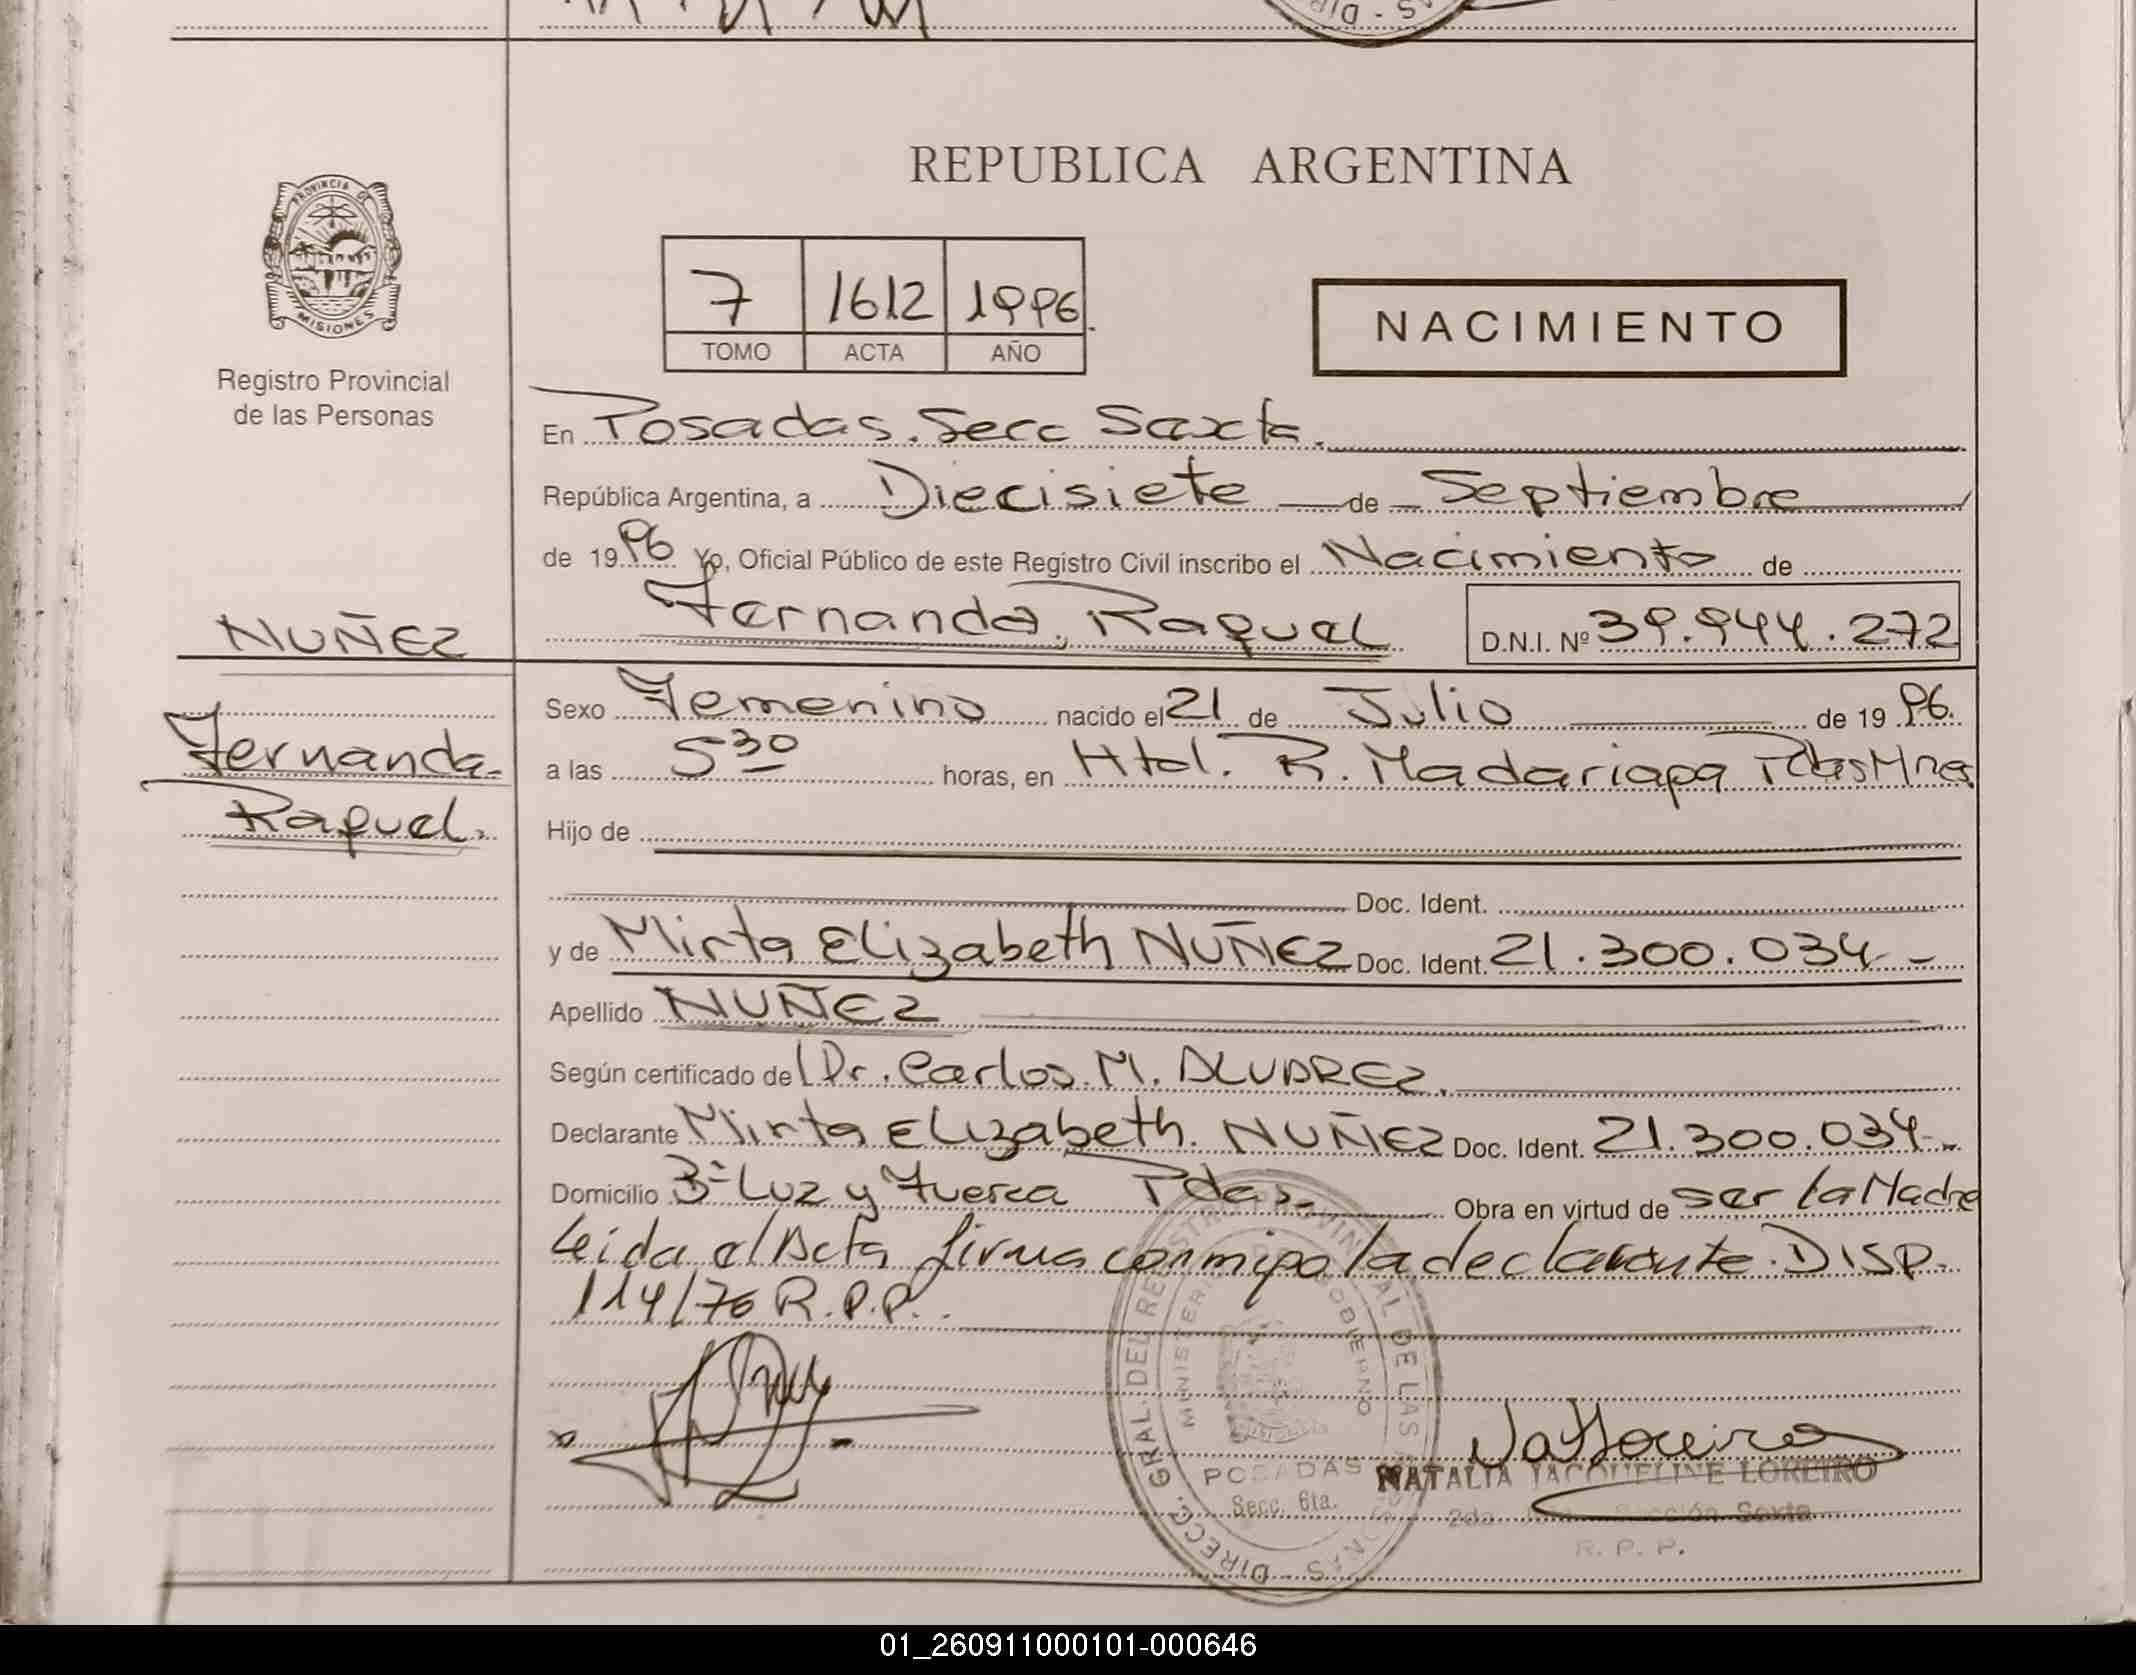 REPUBLICA ARGENTINA
PROVINCIA DE
MISIONES
Registro Provincial
de las Personas
7 1612 1996
TOMO ACTA AÑO
NACIMIENTO
En Posadas. Secc Sexta.
República Argentina, a Diecisiete de Septiembre
de 1996 Yo, Oficial Público de este Registro Civil inscribo el Nacimiento de
Fernanda, Raquel D.N.I. Nº 39.944.272
NUÑEZ
Fernanda
Raquel.
Sexo Femenino nacido el 21 de Julio de 1996.
a las 5 30 horas, en Htal. R. Madariaga Pdas Mnes
Hijo de
Doc. Ident.
y de Mirta Elizabeth NUÑEZ Doc. Ident. 21.300.034-
Apellido NUÑEZ
Según certificado del Dr. Carlos M. ALVAREZ.
Declarante Mirta Elizabeth. NUÑEZ Doc. Ident. 21.300.034-
Domicilio Bº Luz y Fuerza Pdas. Obra en virtud de ser la Madre
Leida el Acta firma conmigo la declarante. DISP.
114/76 R.P.P.
DIRECC. GRAL. DEL REGISTRO PROVINCIAL DE LAS PERSONAS
MINISTERIO GOBIERNO
POSADAS
Secc. 6ta.
NATALIA JACQUELINE LOREIRO
2da Sección Sexta
R. P. P.
01_260911000101-000646